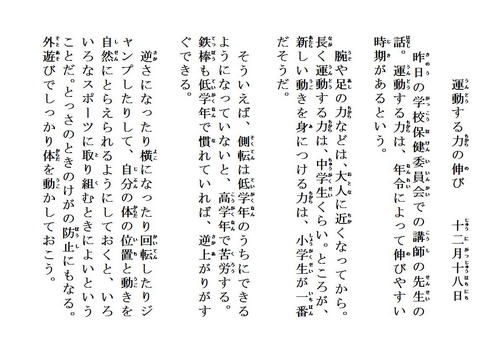 運動する力の伸び　　十二月十八日
昨日の学校保健委員会での講師の先生の
話。運動する力は、年令によって伸びやすい
時期があるという。
腕や足の力などは、大人に近くなってから。
長く運動する力は、中学生くらい。ところが、
新しい動きを身につける力は、小学生が一番
だそうだ。
そういえば、側転は低学年のうちにできる
ようになっていないと、高学年で苦労する。
鉄棒も低学年で慣れていれば、逆上がりがす
ぐできる。
逆さになったり横になったり回転したりジ
ャンプしたりして、自分の体の位置と動きを
自然にとらえられるようにしておくと、いろ
いろなスポーツに取り組むときによいという
ことだ。とっさのときのけがの防止にもなる。
外遊びでしっかり体を動かしておこう。